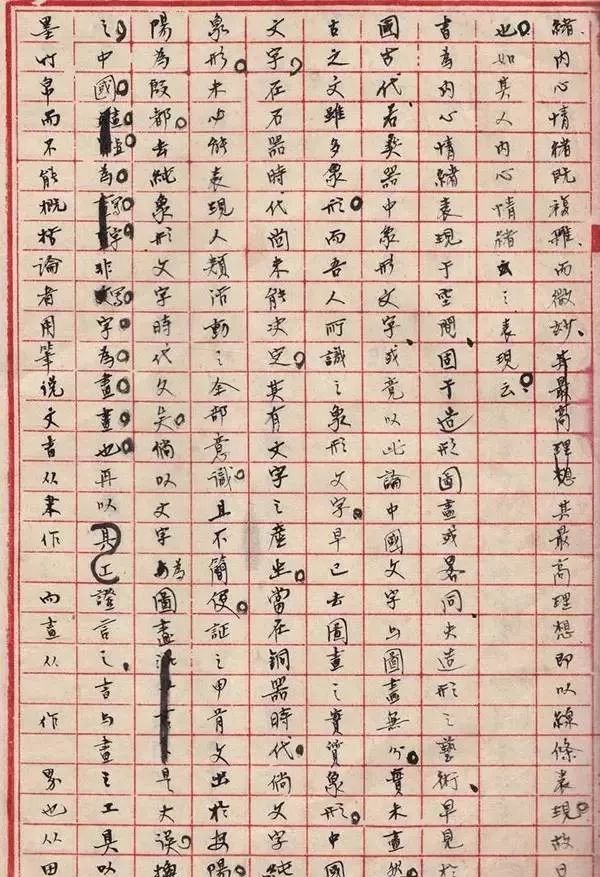 緒内心情緒既複雜而微妙、其最高理想其最高理想即以線條表現。故曰
也。如其人内心情緒之表現云。
書為内心情緒表現于空間固于造形圖畫或畧同夫造形之藝術、早見於
國古代若彝器中象形文字、或竟以此論中國文字与圖畫無分。實未盡然。
古之文雖多象形。而吾人所識之象形文字。早已去圖畫之實質象形。中國
文字、在石器時代尚未能決定。其有文字之產生。當在銅器時代。倘文字純
象形。未必能表現人類活動之全部意識。且不簡便。証之甲骨文出於安陽。
陽為殷都。去純象形文字時代久矣。倘以文字為圖畫是大誤。換
之。中國。為。寫。字。非寫。字。為。畫。畫。也。再以其工證言之、書与畫之工具以
墨竹帛而不能概括論者用筆說文書从聿作 而畫从 作 界也从田